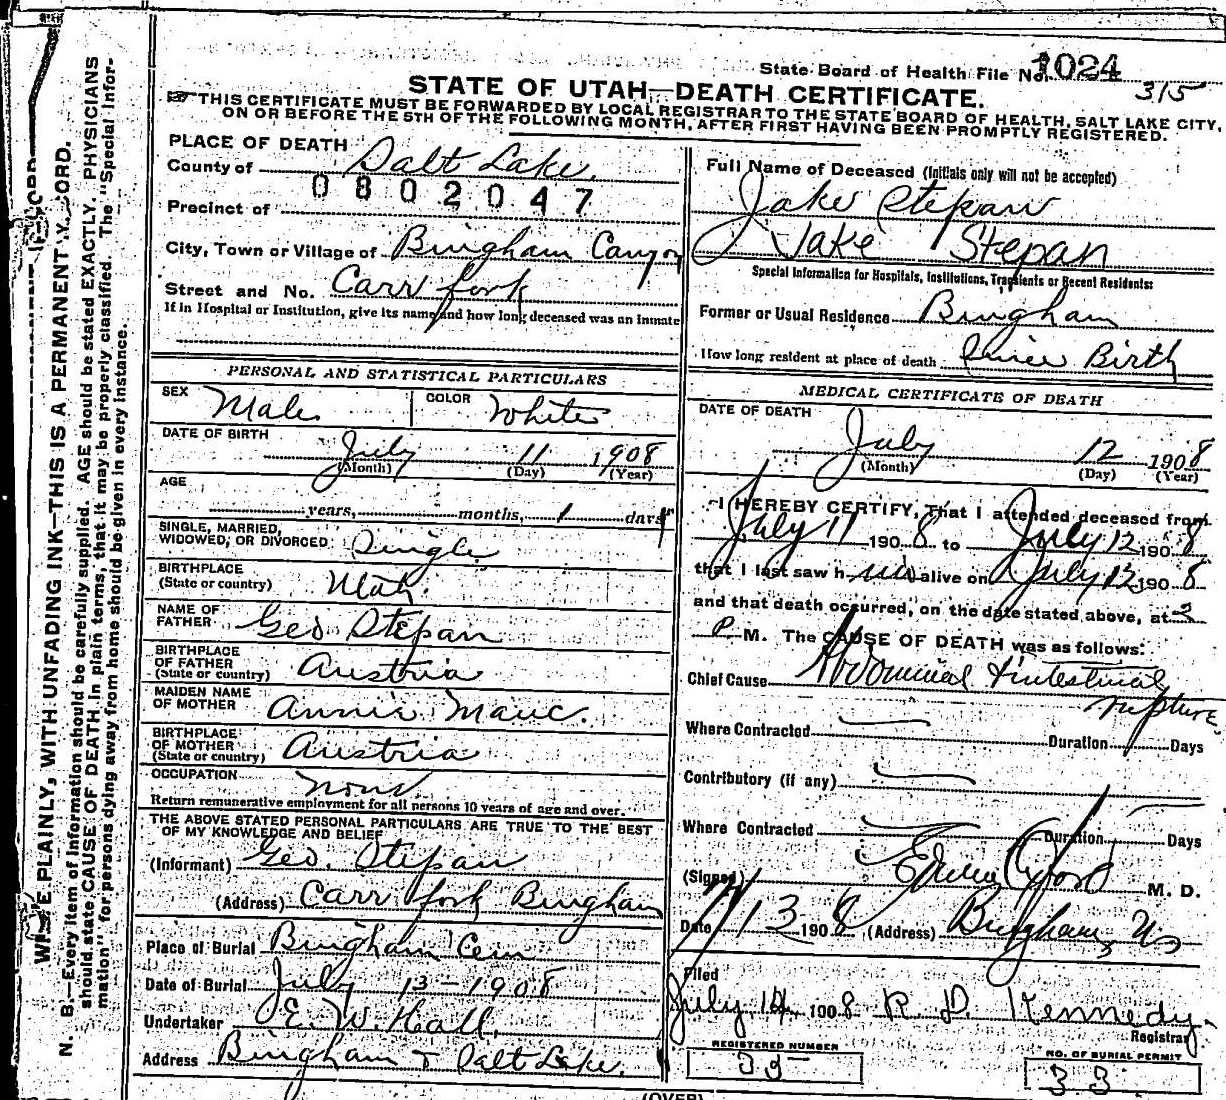 State Board of Health File No. 1024
315
STATE OF UTAH—DEATH CERTIFICATE.
THIS CERTIFICATE MUST BE FORWARDED BY LOCAL REGISTRAR TO THE STATE BOARD OF HEALTH, SALT LAKE CITY,
ON OR BEFORE THE 5TH OF THE FOLLOWING MONTH, AFTER FIRST HAVING BEEN PROMPTLY REGISTERED.
PLACE OF DEATH
County of Salt Lake.
0802047
Precinct of
City, Town or Village of Bingham Canyon
Street and No. Carr fork
If in Hospital or Institution, give its name and how long deceased was an inmate
PERSONAL AND STATISTICAL PARTICULARS
SEX Male COLOR White
DATE OF BIRTH July 11 1908
(Month) (Day) (Year)
AGE
years, months, 1 days
SINGLE, MARRIED,
WIDOWED, OR DIVORCED Single
BIRTHPLACE
(State or country) Utah.
NAME OF
FATHER Geo Stepan
BIRTHPLACE
OF FATHER
(State or country) Austria
MAIDEN NAME
OF MOTHER Annie
BIRTHPLACE
OF MOTHER
(State or country) Austria
OCCUPATION None
Return remunerative employment for all persons 10 years of age and over.
THE ABOVE STATED PERSONAL PARTICULARS ARE TRUE TO THE BEST
OF MY KNOWLEDGE AND BELIEF
(Informant) Geo. Stepan
(Address) Carr fork Bingham
Place of Burial Bingham Cem
Date of Burial July 13-1908
Undertaker E. W. Hall,
Address Bingham & Salt Lake.
Full Name of Deceased (Initials only will not be accepted)
Jake Stepan
Jake Stepan
Special Information for Hospitals, Institutions, Transients or Recent Residents:
Former or Usual Residence Bingham
How long resident at place of death Since Birth
MEDICAL CERTIFICATE OF DEATH
DATE OF DEATH
July 12 1908
(Month) (Day) (Year)
I HEREBY CERTIFY, That I attended deceased from
July 11 1908 to July 12 1908
that I last saw him alive on July 12 1908
and that death occurred, on the date stated above, at 3
P M. The CAUSE OF DEATH was as follows:
Chief Cause Abdominal & intestinal
rupture
Where Contracted Duration Days
Contributory (if any)
Where Contracted Duration Days
(Signed) M. D.
Date 7/13 1908 (Address) Bingham,
Filed
July 14 1908 R. D. Kennedy.
Registrar
REGISTERED NUMBER
33
NO. OF BURIAL PERMIT
33
(OVER)
PLAINLY, WITH UNFADING INK—THIS IS A PERMANENT
N. B.—Every item of information should be carefully supplied. AGE should be stated EXACTLY. PHYSICIANS
should state CAUSE OF DEATH in plain terms, that it may be properly classified. The "Special Infor-
mation" for persons dying away from home should be given in every instance.